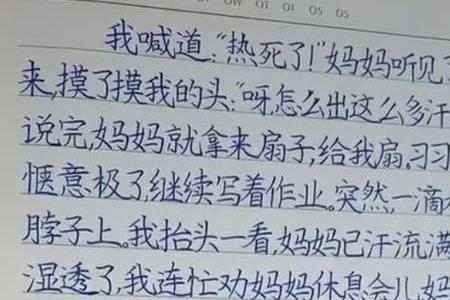 OW OT OF OS OS
我喊道:“热死了!”妈妈听见了
来,摸了摸我的头:“呀,怎么出这么多汗
说完,妈妈就拿来扇子,给我扇。习习
惬意极了,继续写着作业。突然,一滴
脖子上。我抬头一看,妈妈已汗流满
湿透了,我连忙劝妈妈休息会儿,妈